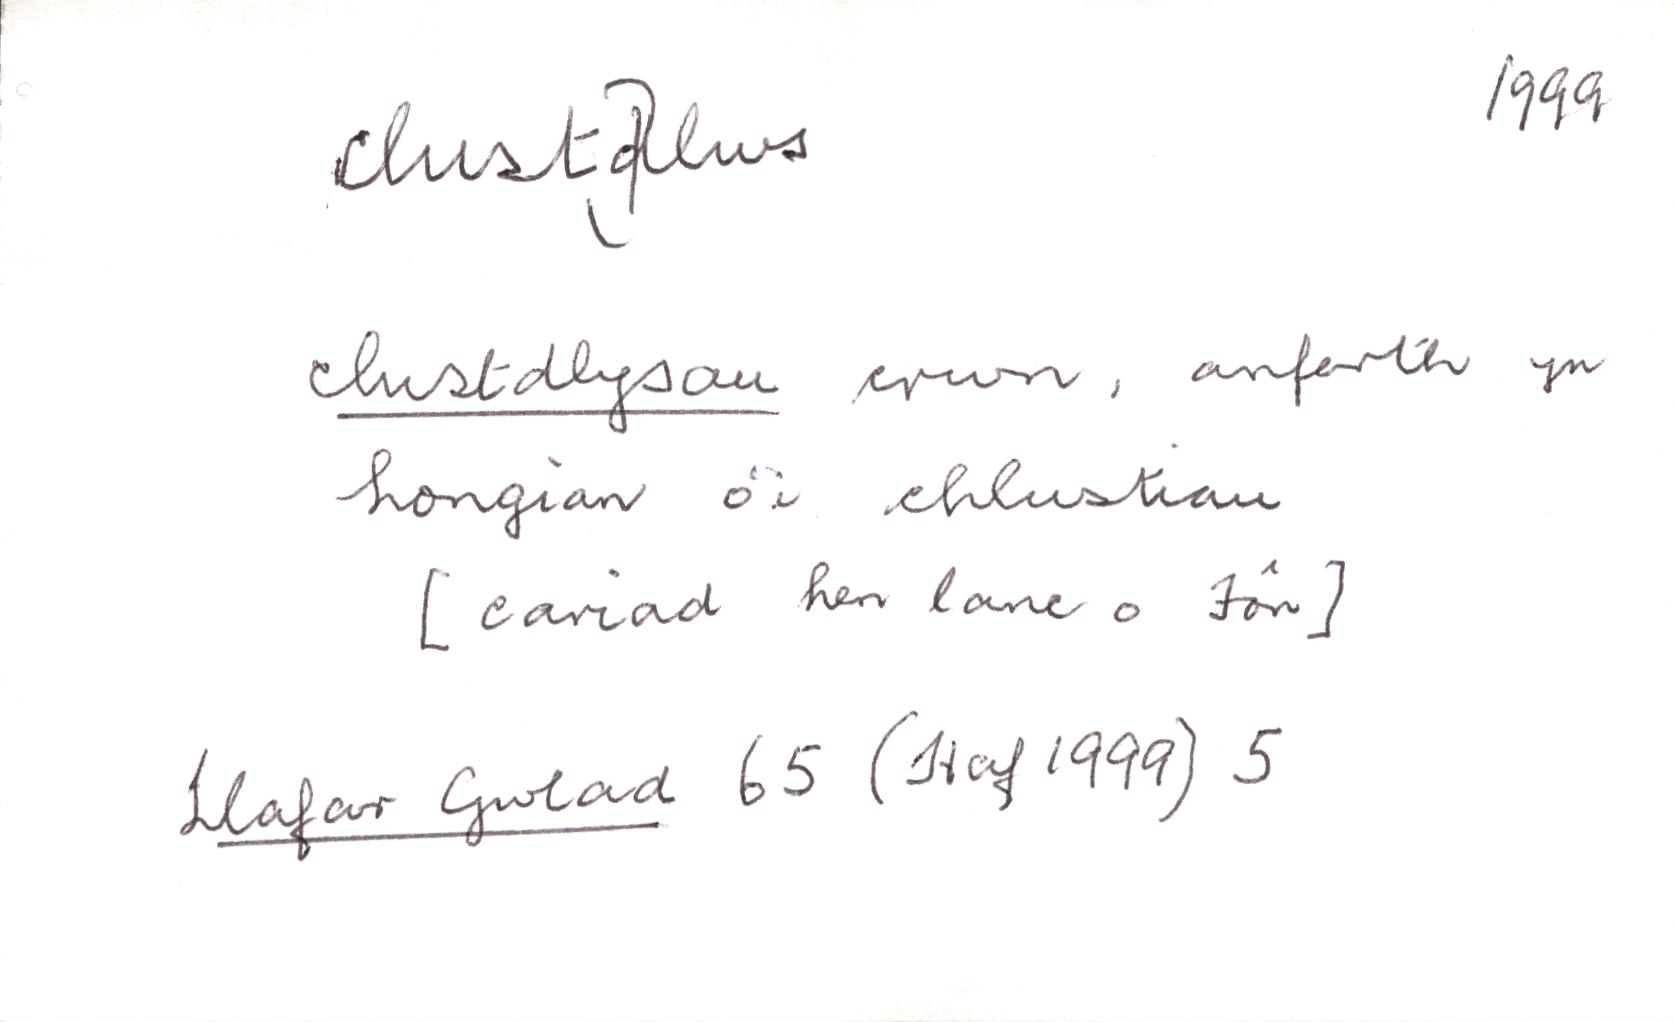 1999
clustdlws
clustdlysau crwn, anferth yn
hongian o'i chlustiau
[cariad hen lanc o Fôn]
Llafar Gwlad 65 (Haf 1999) 5